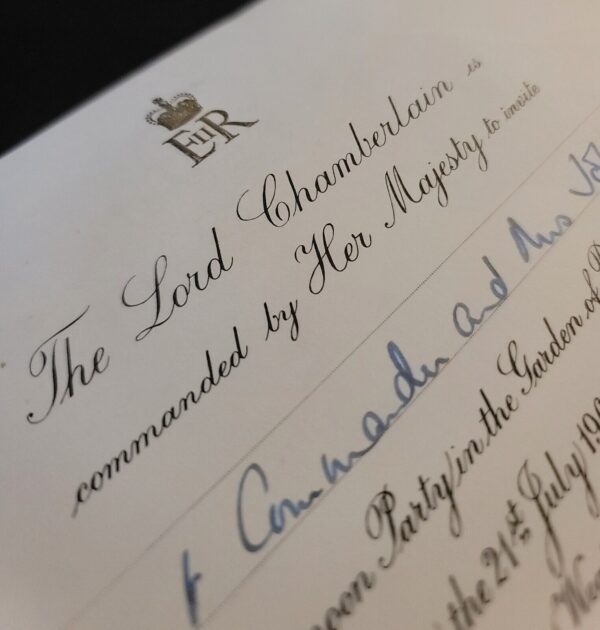 EIIR
The Lord Chamberlain is
commanded by Her Majesty to invite
Commander and Mrs
Party in the Garden of
the 21st July